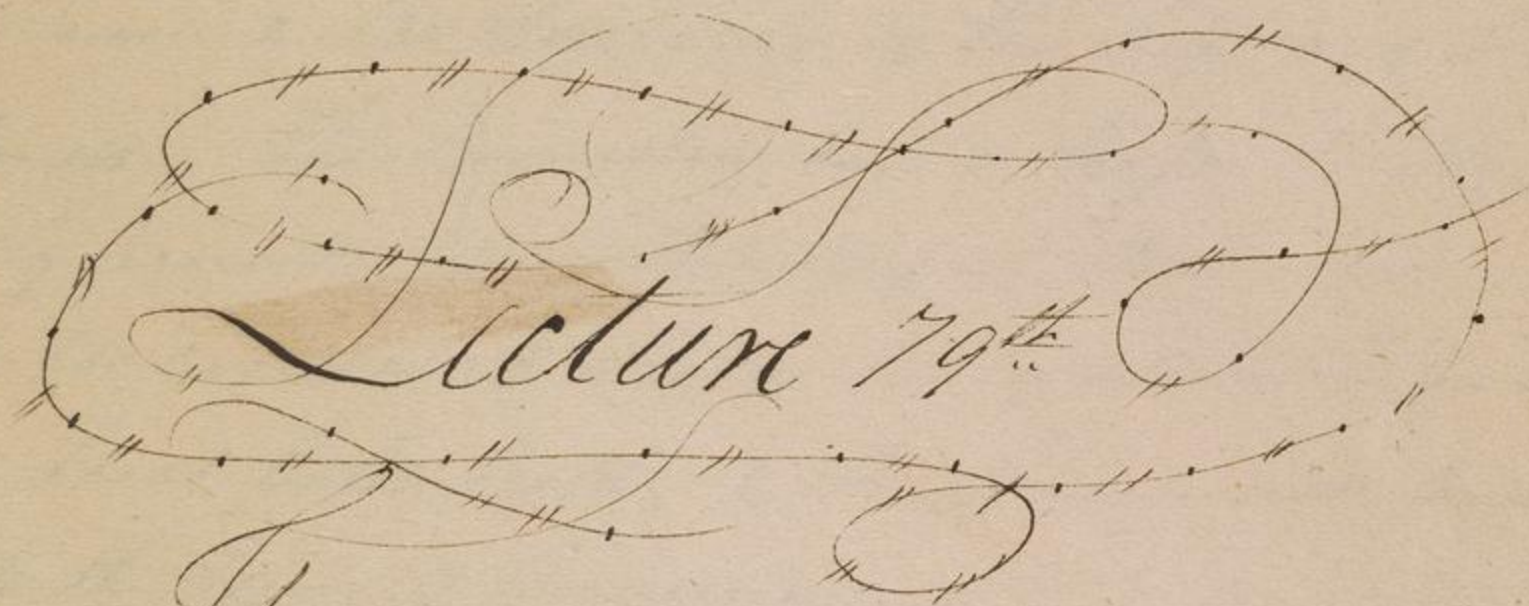 Lecture 79th